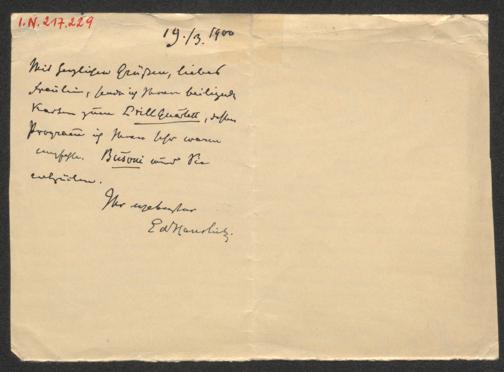 I.N. 217.229
19./3. 1900
Mit herzlichen Grüßen, liebes
Fräulein, sende ich Ihnen beiliegende
Karten zum Prill Quartett, dessen
Program̄ ich Ihnen sehr warm
empfehle. Busoni wird Sie
entzücken.
Ihr ergebenster
EdHanslick.